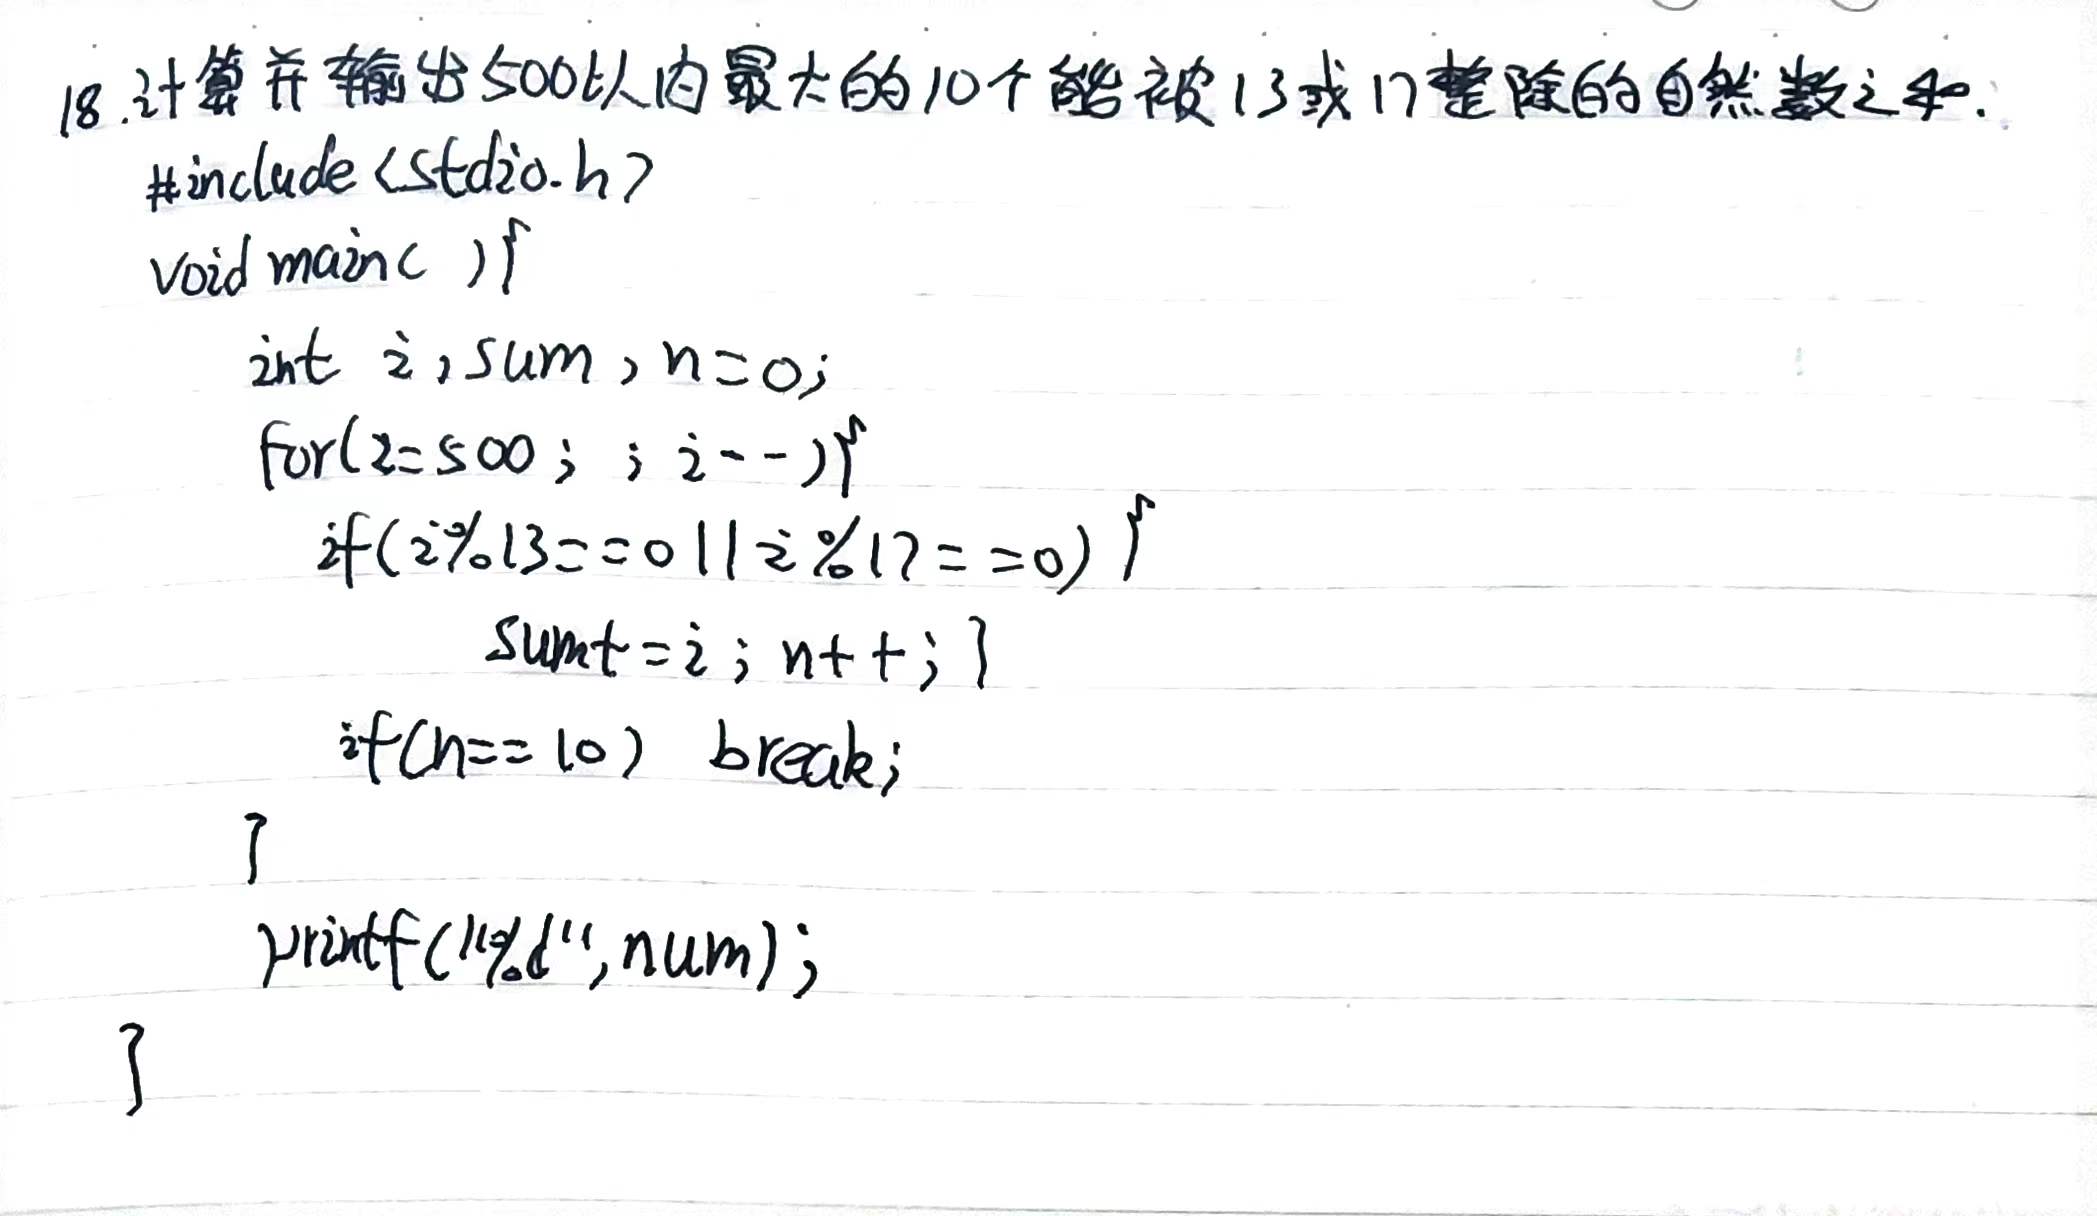 18.计算并输出500以内最大的10个能被13或17整除的自然数之和.
#include<stdio.h>
void main( ){
int i,sum,n=0;
for(i=500; ; i--){
if(i%13==0||i%17==0){
sum+=i; n++;}
if(n==10) break;
}
printf("%d",num);
}